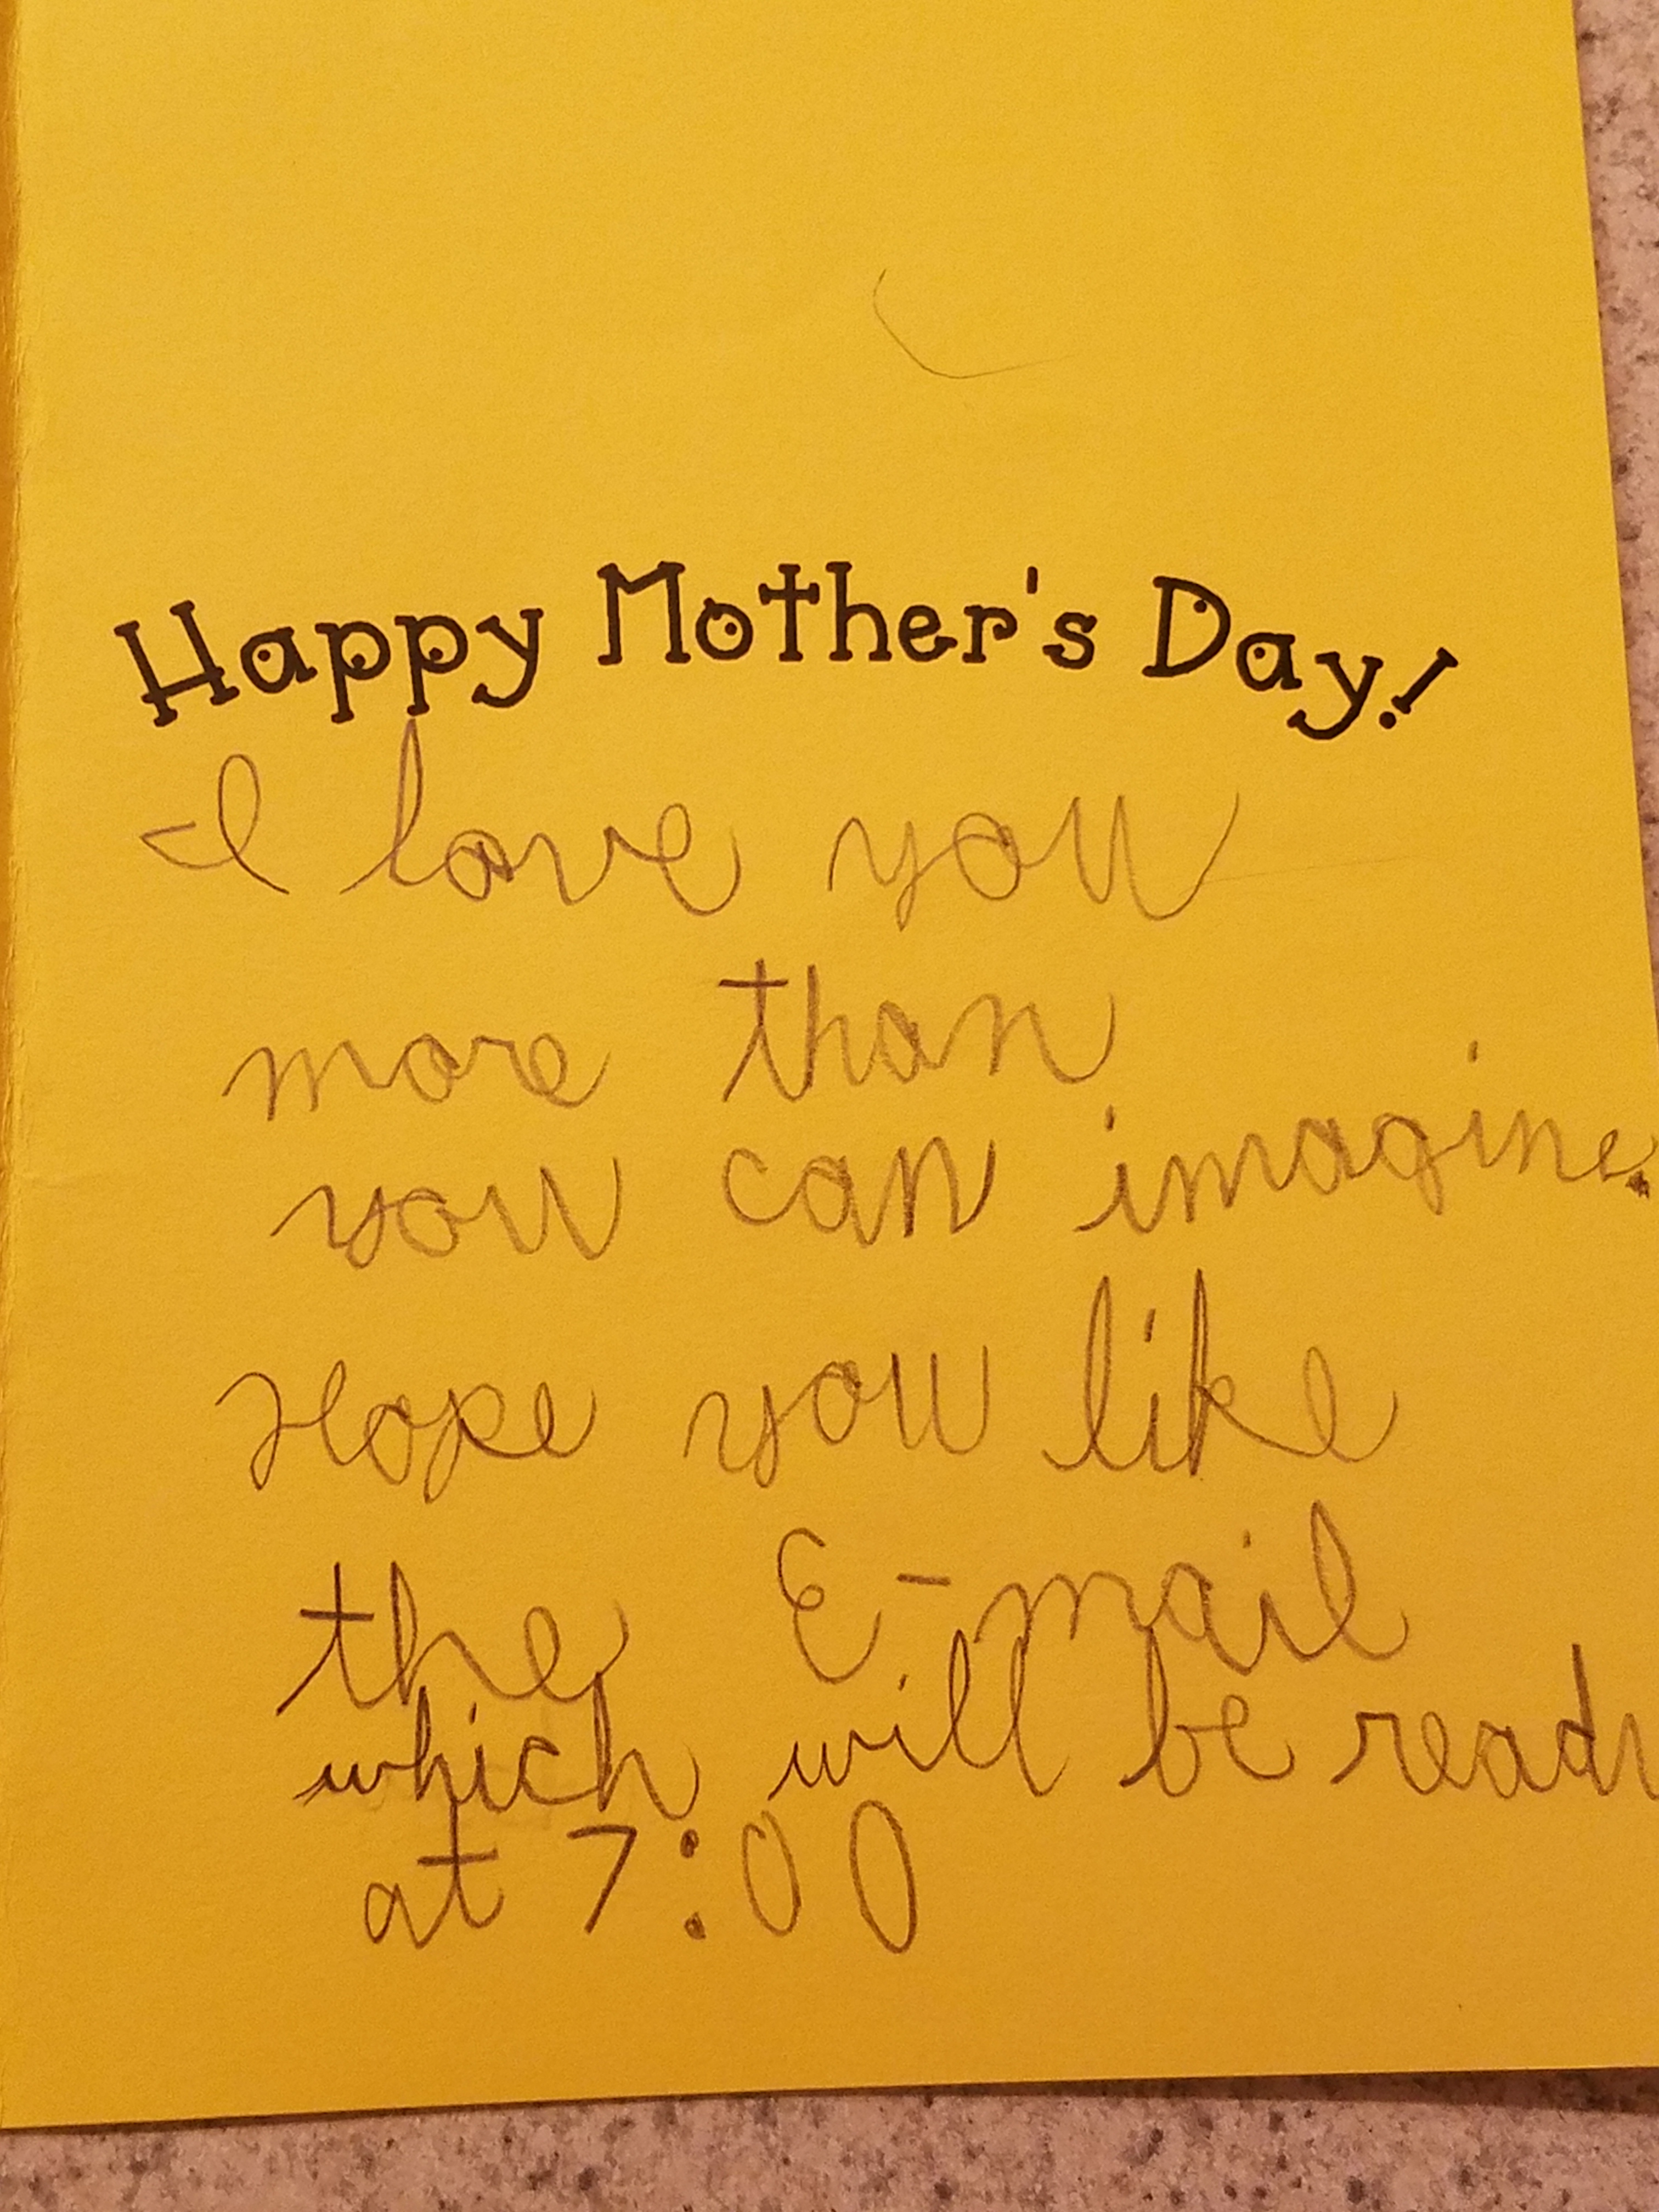 Happy Mother's Day!
I love you
more than
you can imagine.
Hope you like
the E-mail
which will be ready
at 7:00